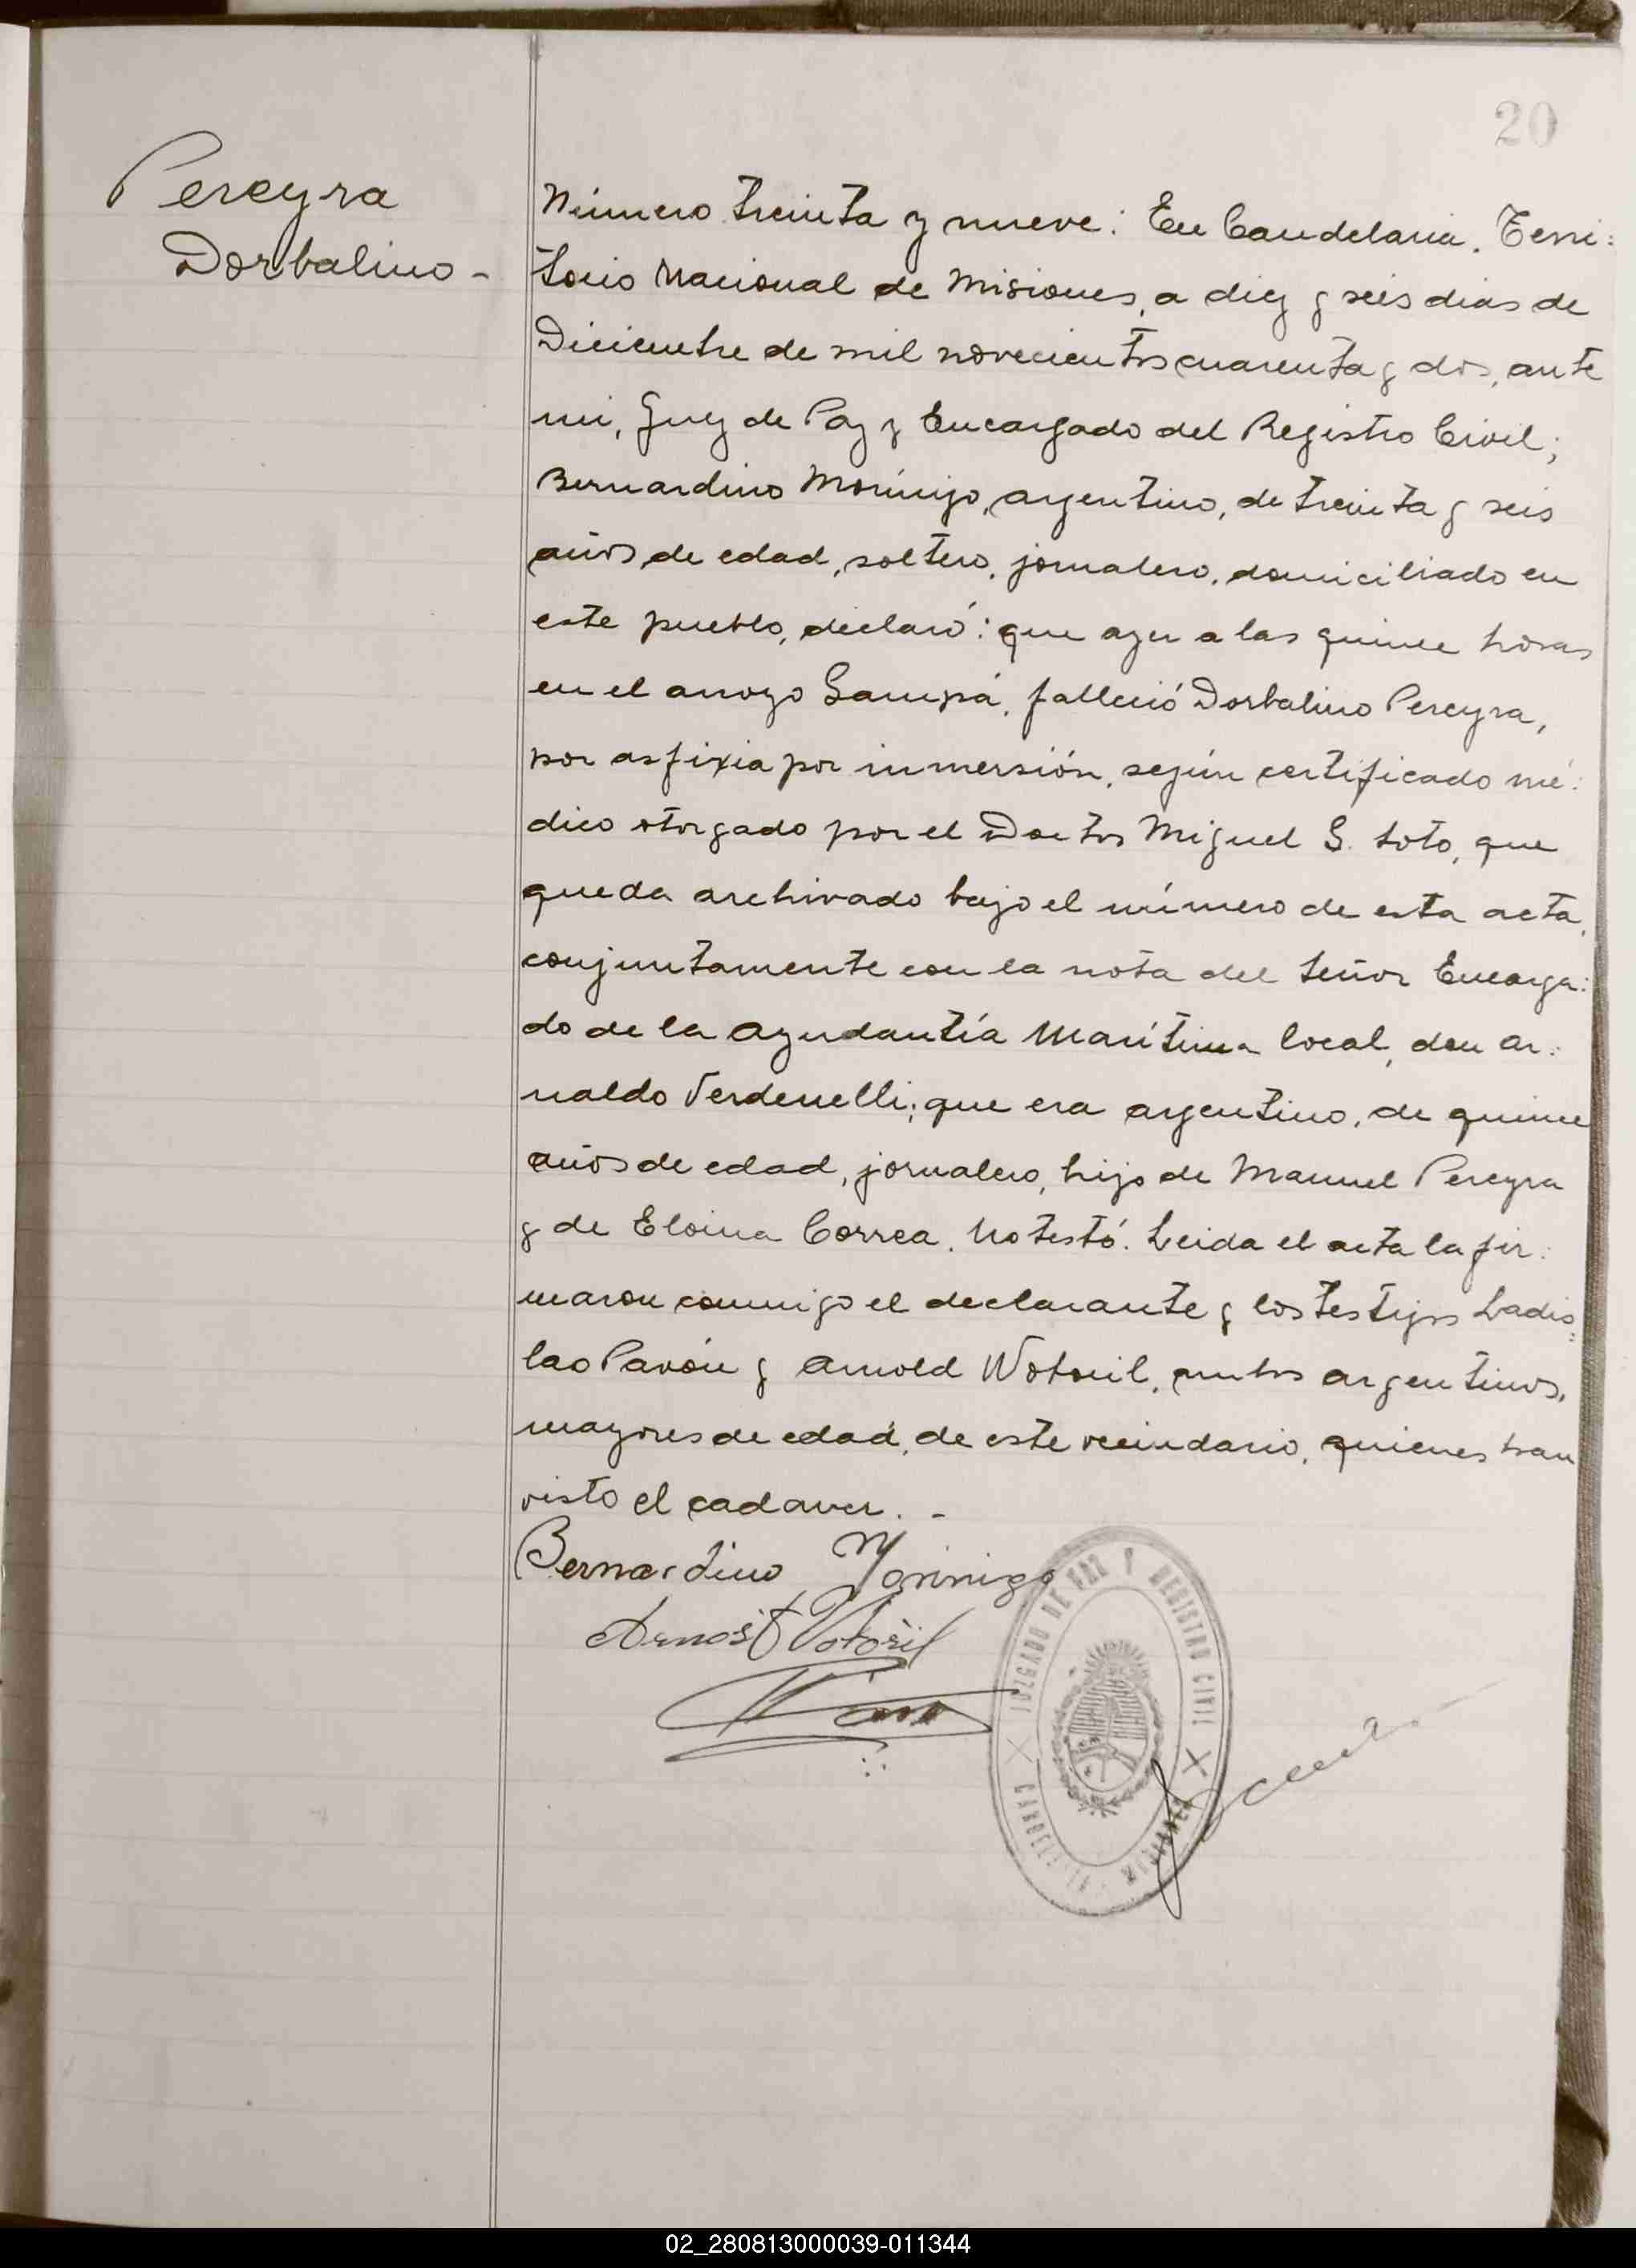 20
Pereyra
Dorbalino -
Número treinta y nueve: En Candelaria, Terri:
torio Nacional de Misiones, a diez y seis dias de
Diciembre de mil novecientos cuarenta y dos, ante
mi, Juez de Paz y Encargado del Registro Civil;
Bernardino Morínigo, argentino, de treinta y seis
años de edad, soltero, jornalero, domiciliado en
este pueblo, declaró: que ayer a las quince horas
en el arroyo, falleció Dorbalino Pereyra,
por asfixia por inmersión, según certificado mé:
dico otorgado por el Doctor Miguel S. Soto, que
queda archivado bajo el número de esta acta,
conjuntamente con la nota del Señor Encarga:
do de la Ayudantía Marítima local, don Ar:
naldo Verdenelli; que era argentino, de quince
años de edad, jornalero, hijo de Manuel Pereyra
y de Eloina Correa. No testó. Leida el acta la fir:
maron conmigo el declarante y los testigos Ladis:
lao Pavón y Arnold Wotoril, ambos argentinos,
mayores de edad, de este vecindario, quienes han
visto el cadaver. -
Bernardino Morinigo
Arnošt Votořil
JUZGADO DE PAZ Y REGISTRO CIVIL
CANDELARIA - MISIONES
02_280813000039-011344